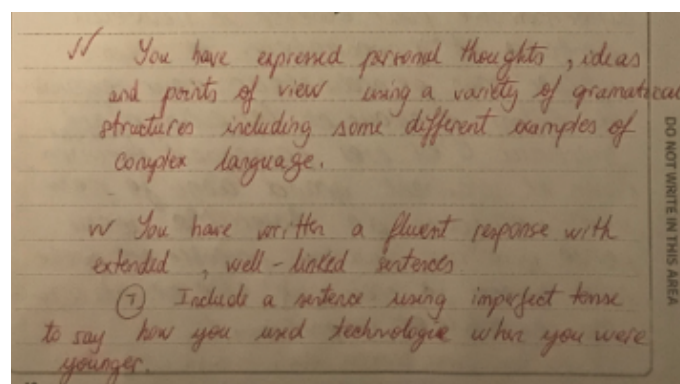 ✓✓ You have expressed personal thoughts, ideas
and points of view using a variety of gramatical
structures including some different examples of
complex language.
W You have written a fluent response with
extended, well-linked sentences
T Include a sentence using imperfect tense
to say how you used technologie when you were
younger.
DO NOT WRITE IN THIS AREA